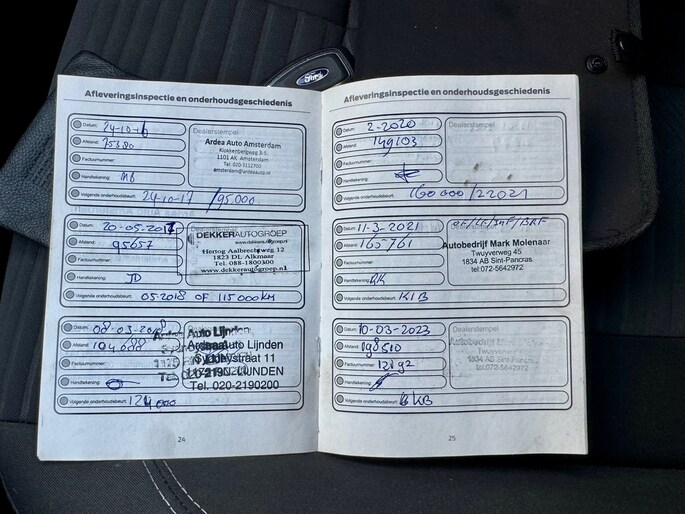 Ford
Afleveringsinspectie en onderhoudsgeschiedenis
Datum: 24-10-16
Afstand: 75380
Factuurnummer:
Handtekening: MB
Volgende onderhoudsbeurt: 24-10-17 / 95.000
Dealerstempel
Ardea Auto Amsterdam
Klokkenbergweg 3-5
1101 AK Amsterdam
Tel. 020-3112700
amsterdam@ardeaauto.nl
Datum: 20-05-2017
Afstand: 95657
Factuurnummer:
Handtekening: JD
Volgende onderhoudsbeurt: 05-2018 OF 115000KM
DEKKERAUTOGROEP
www.dekkerautogroep.nl
Hertog Aalbrechtweg 12
1823 DL Alkmaar
Tel. 088-1800300
www.dekkerautogroep.nl
Datum: 08-03-2018
Afstand: 104688
Factuurnummer:
Handtekening:
Volgende onderhoudsbeurt: 124000
Auto Lijnden
Ardea Auto Lijnden
Sydneystraat 11
LIJNDEN
Tel. 020-2190200
24
Afleveringsinspectie en onderhoudsgeschiedenis
Datum: 2-2020
Afstand: 149103
Factuurnummer:
Handtekening:
Volgende onderhoudsbeurt: 160000/22021
Dealerstempel
Datum: 11-3-2021
Afstand: 165761
Factuurnummer:
Handtekening: RK
Volgende onderhoudsbeurt: KIB
Autobedrijf Mark Molenaar
Twuyverweg 45
1834 AB Sint-Pancras
tel:072-5642972
Datum: 10-03-2023
Afstand: 198510
Factuurnummer: 12192
Handtekening:
Volgende onderhoudsbeurt: KB
Dealerstempel
Autobedrijf
Twuyverweg 45
1834 AB Sint-Pancras
tel:072-5642972
25